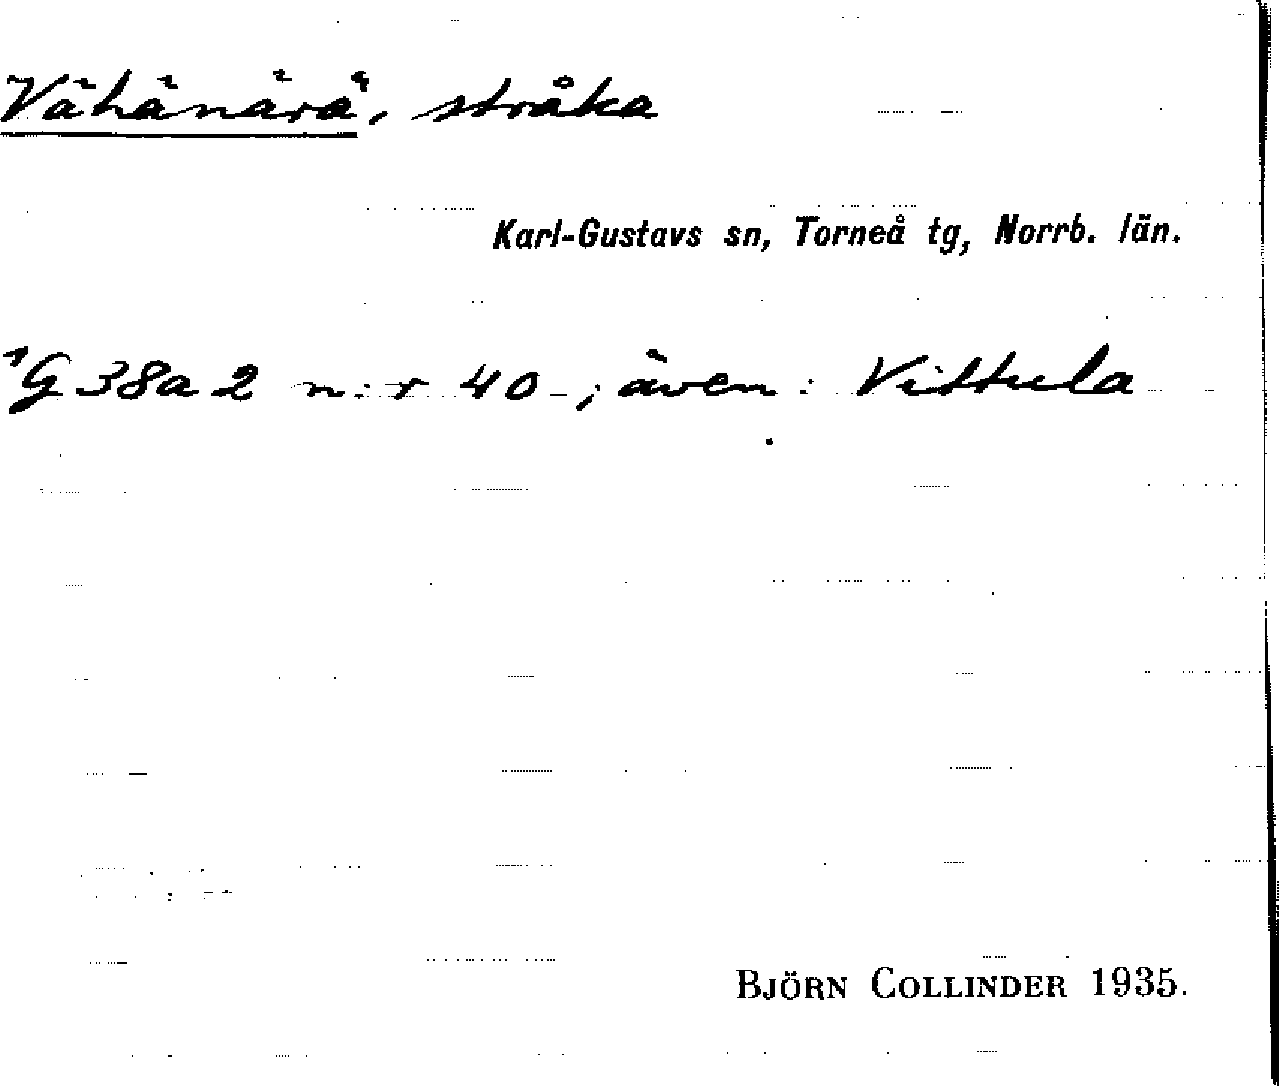 Vähänärä, stråka
Karl-Gustavs sn, Torneå tg, Norrb. län.
G 38a 2 n:r 40; även: Vittula
BJÖRN COLLINDER 1935.